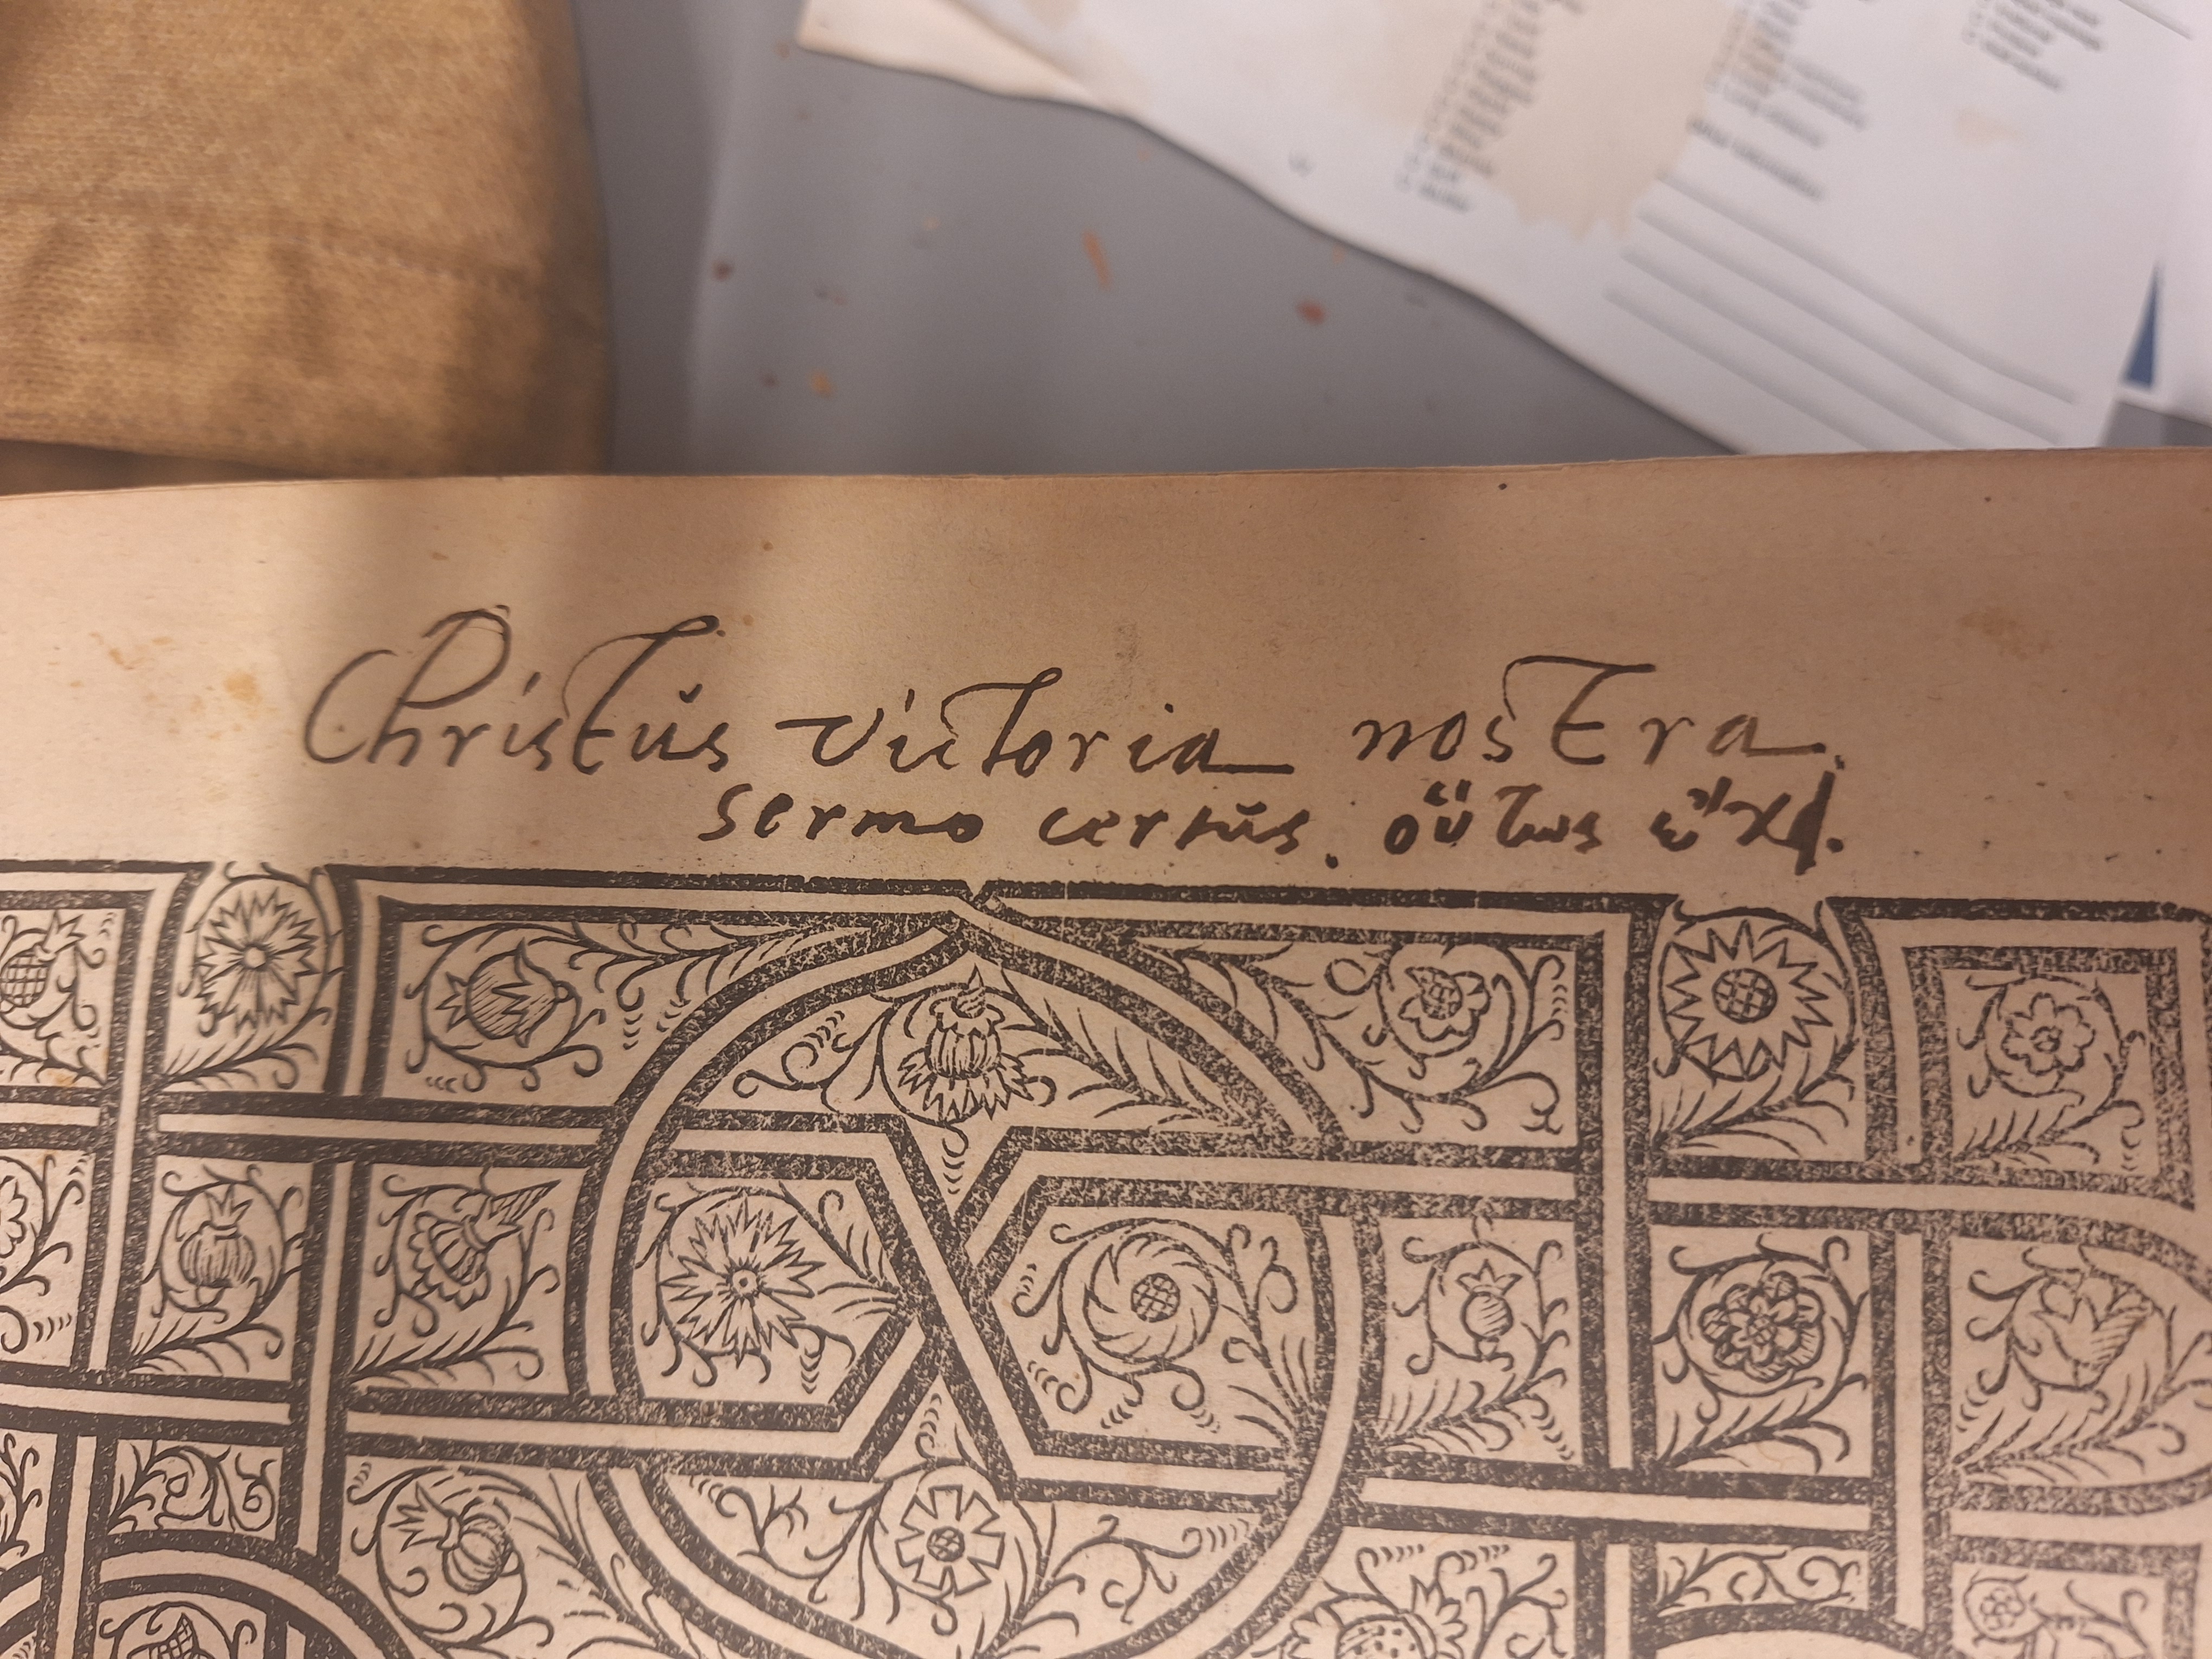 Christŭs victoria nostra.
sermo certŭs. οὕτως